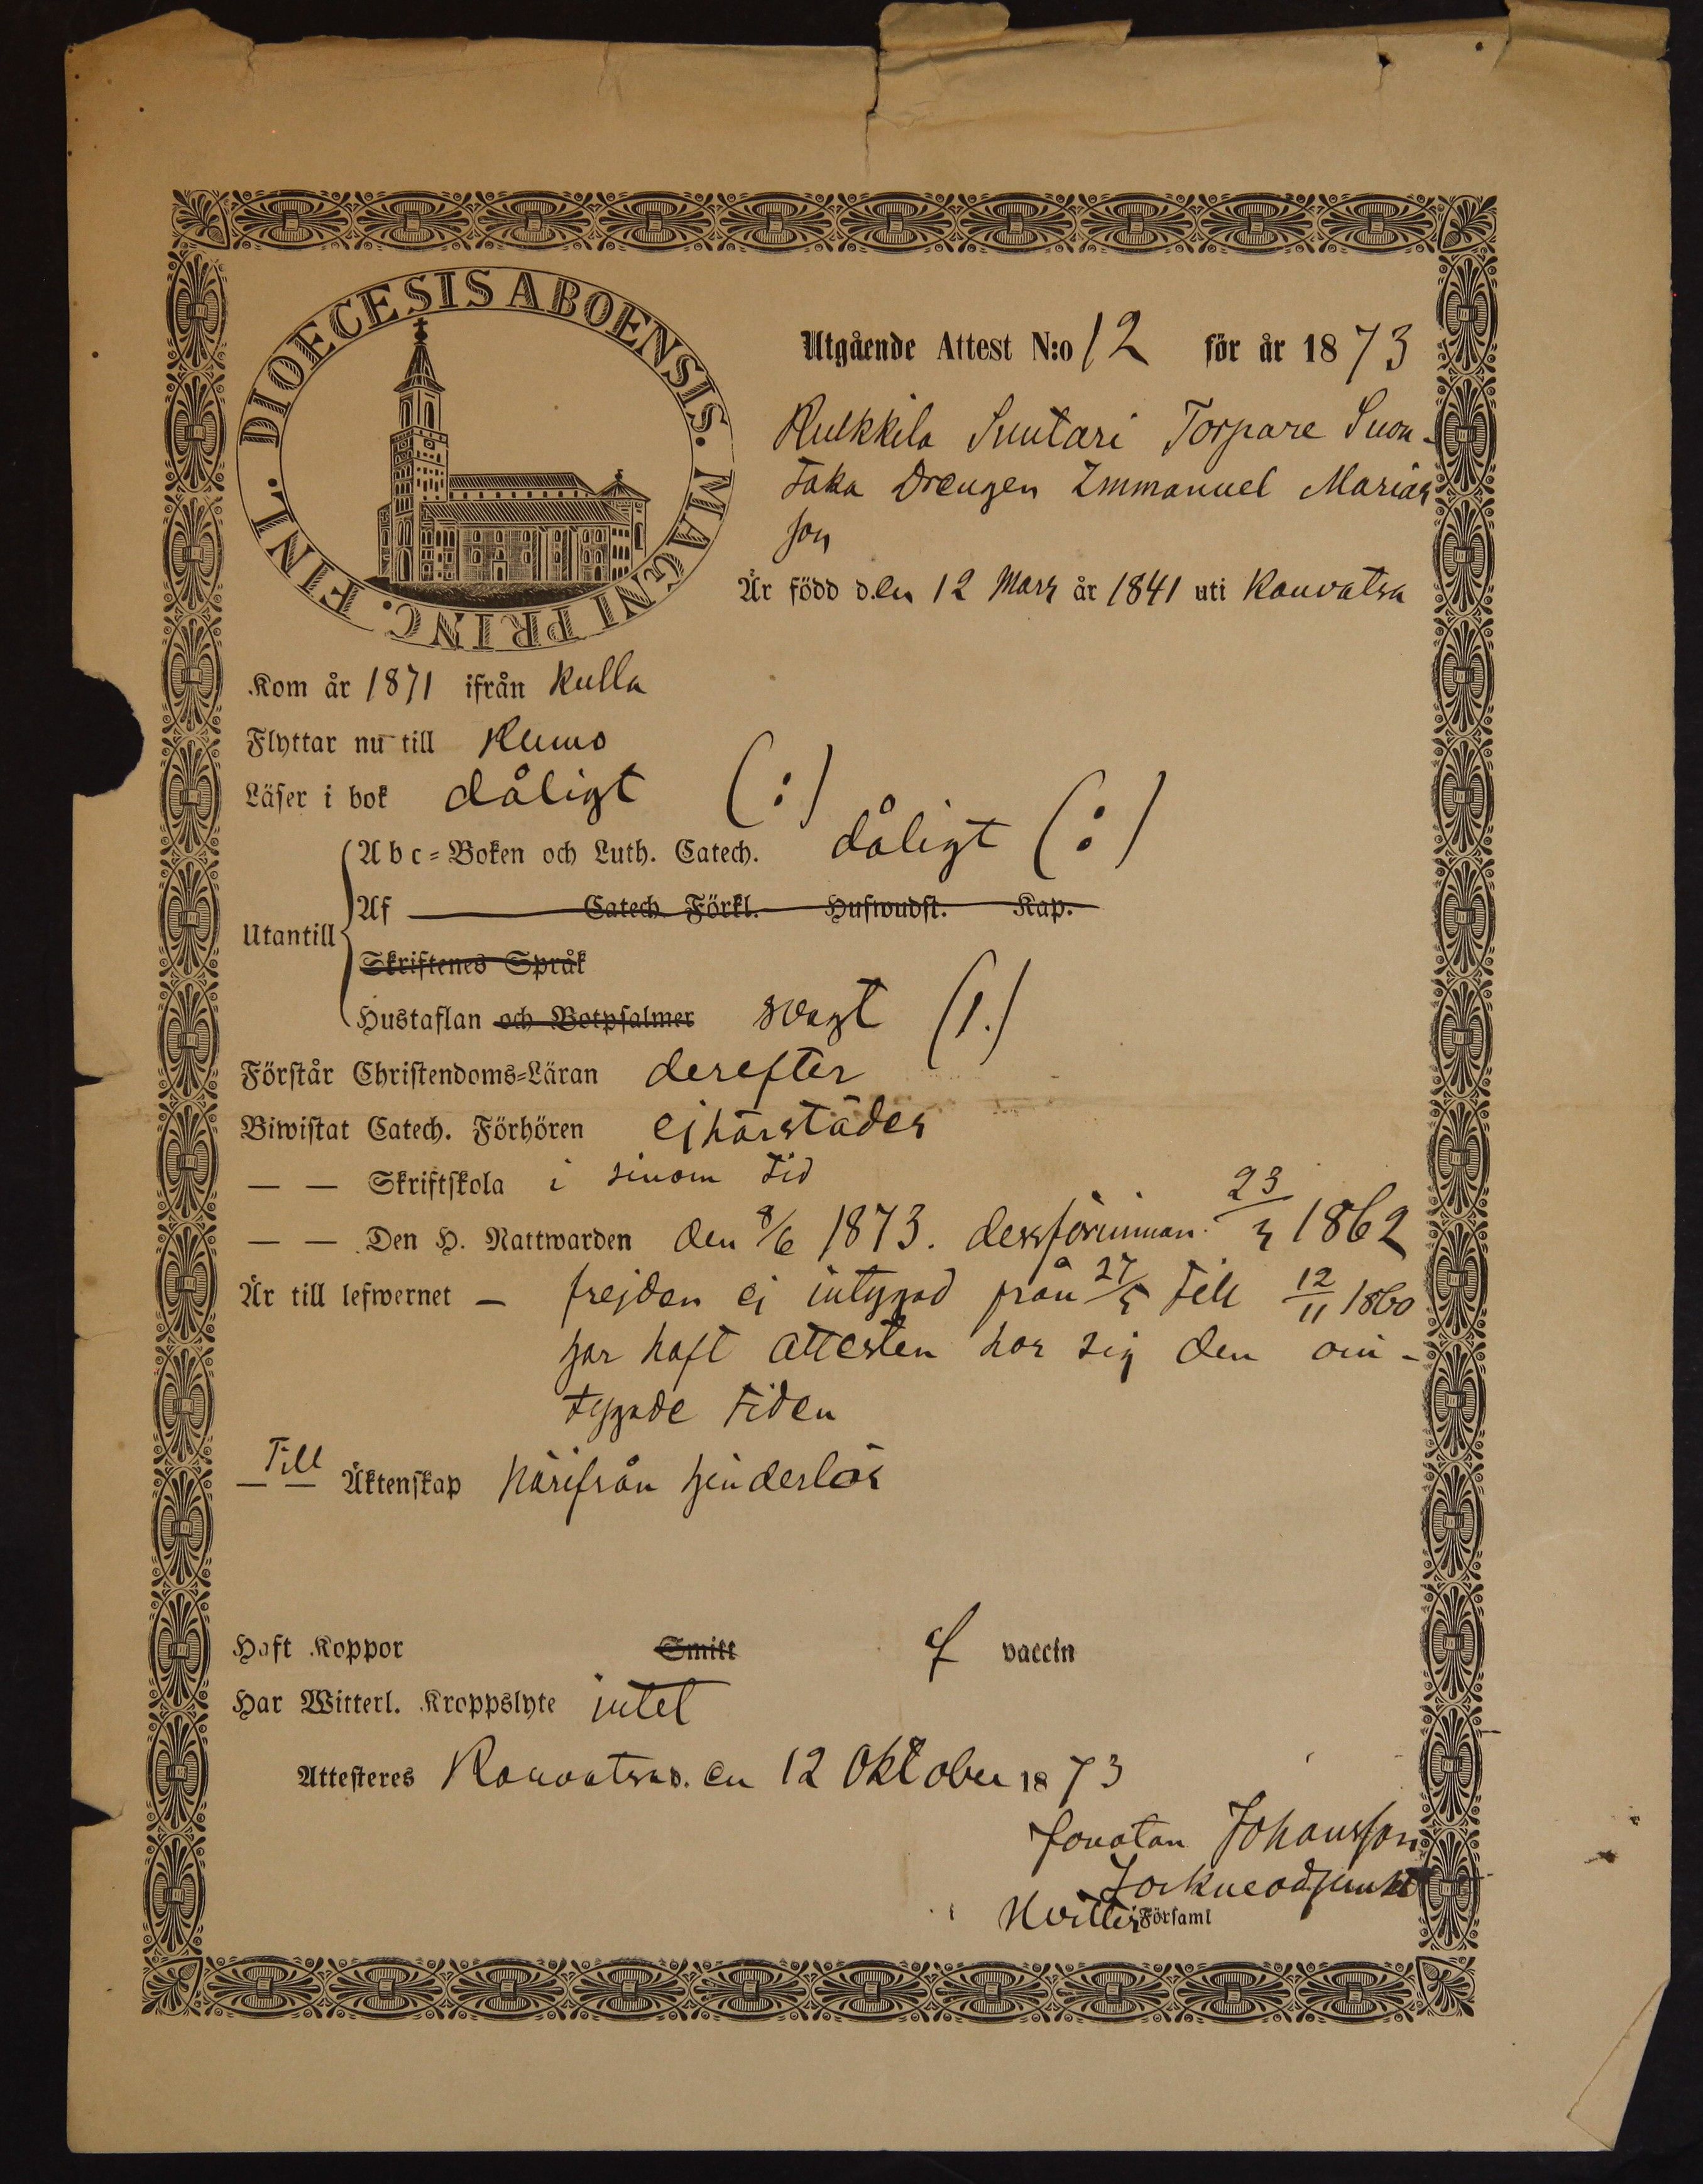 DIOECESIS ABOENSIS. MAGNI PRINC. FINL.
Utgående Attest N:o 12 för år 1873
Kulkkila Suutari Torpare Suon-
taka Drengen Immanuel Marias
son
Är född d.en 12 Mars år 1841 uti Kauvatsa
Kom år 1871 ifrån Kulla
Flyttar nu till Kumo
Läser i bok dåligt (:)
Abc-Boken och Luth. Catech. dåligt (:)
Af Catech. Förkl. Hufwudst. Kap.
Utantill
Skriftenes Språk
Hustaflan och Botpsalmer svagt (1.)
Förstår Christendoms-Läran derefter
Biwistat Catech. Förhören ej härstädes
— — Skriftskola i sinom tid
— — Den H. Nattwarden den 8/6 1873. dessförinnan 23/3 1862
Är till lefwernet — frejden ej intygad från 27/5 till 12/11 1860
har haft attesten hos sig den oin-
tygade tiden
— Till — Äktenskap härifrån hinderlös
Haft Koppor Smitt vaccin
Har Witterl. Kroppslyte intet
Attesteres Kauvatsa d. en 12 Oktober 1873
Jonatan Johansson
Sockneadjunkt
i Hvittis Församl